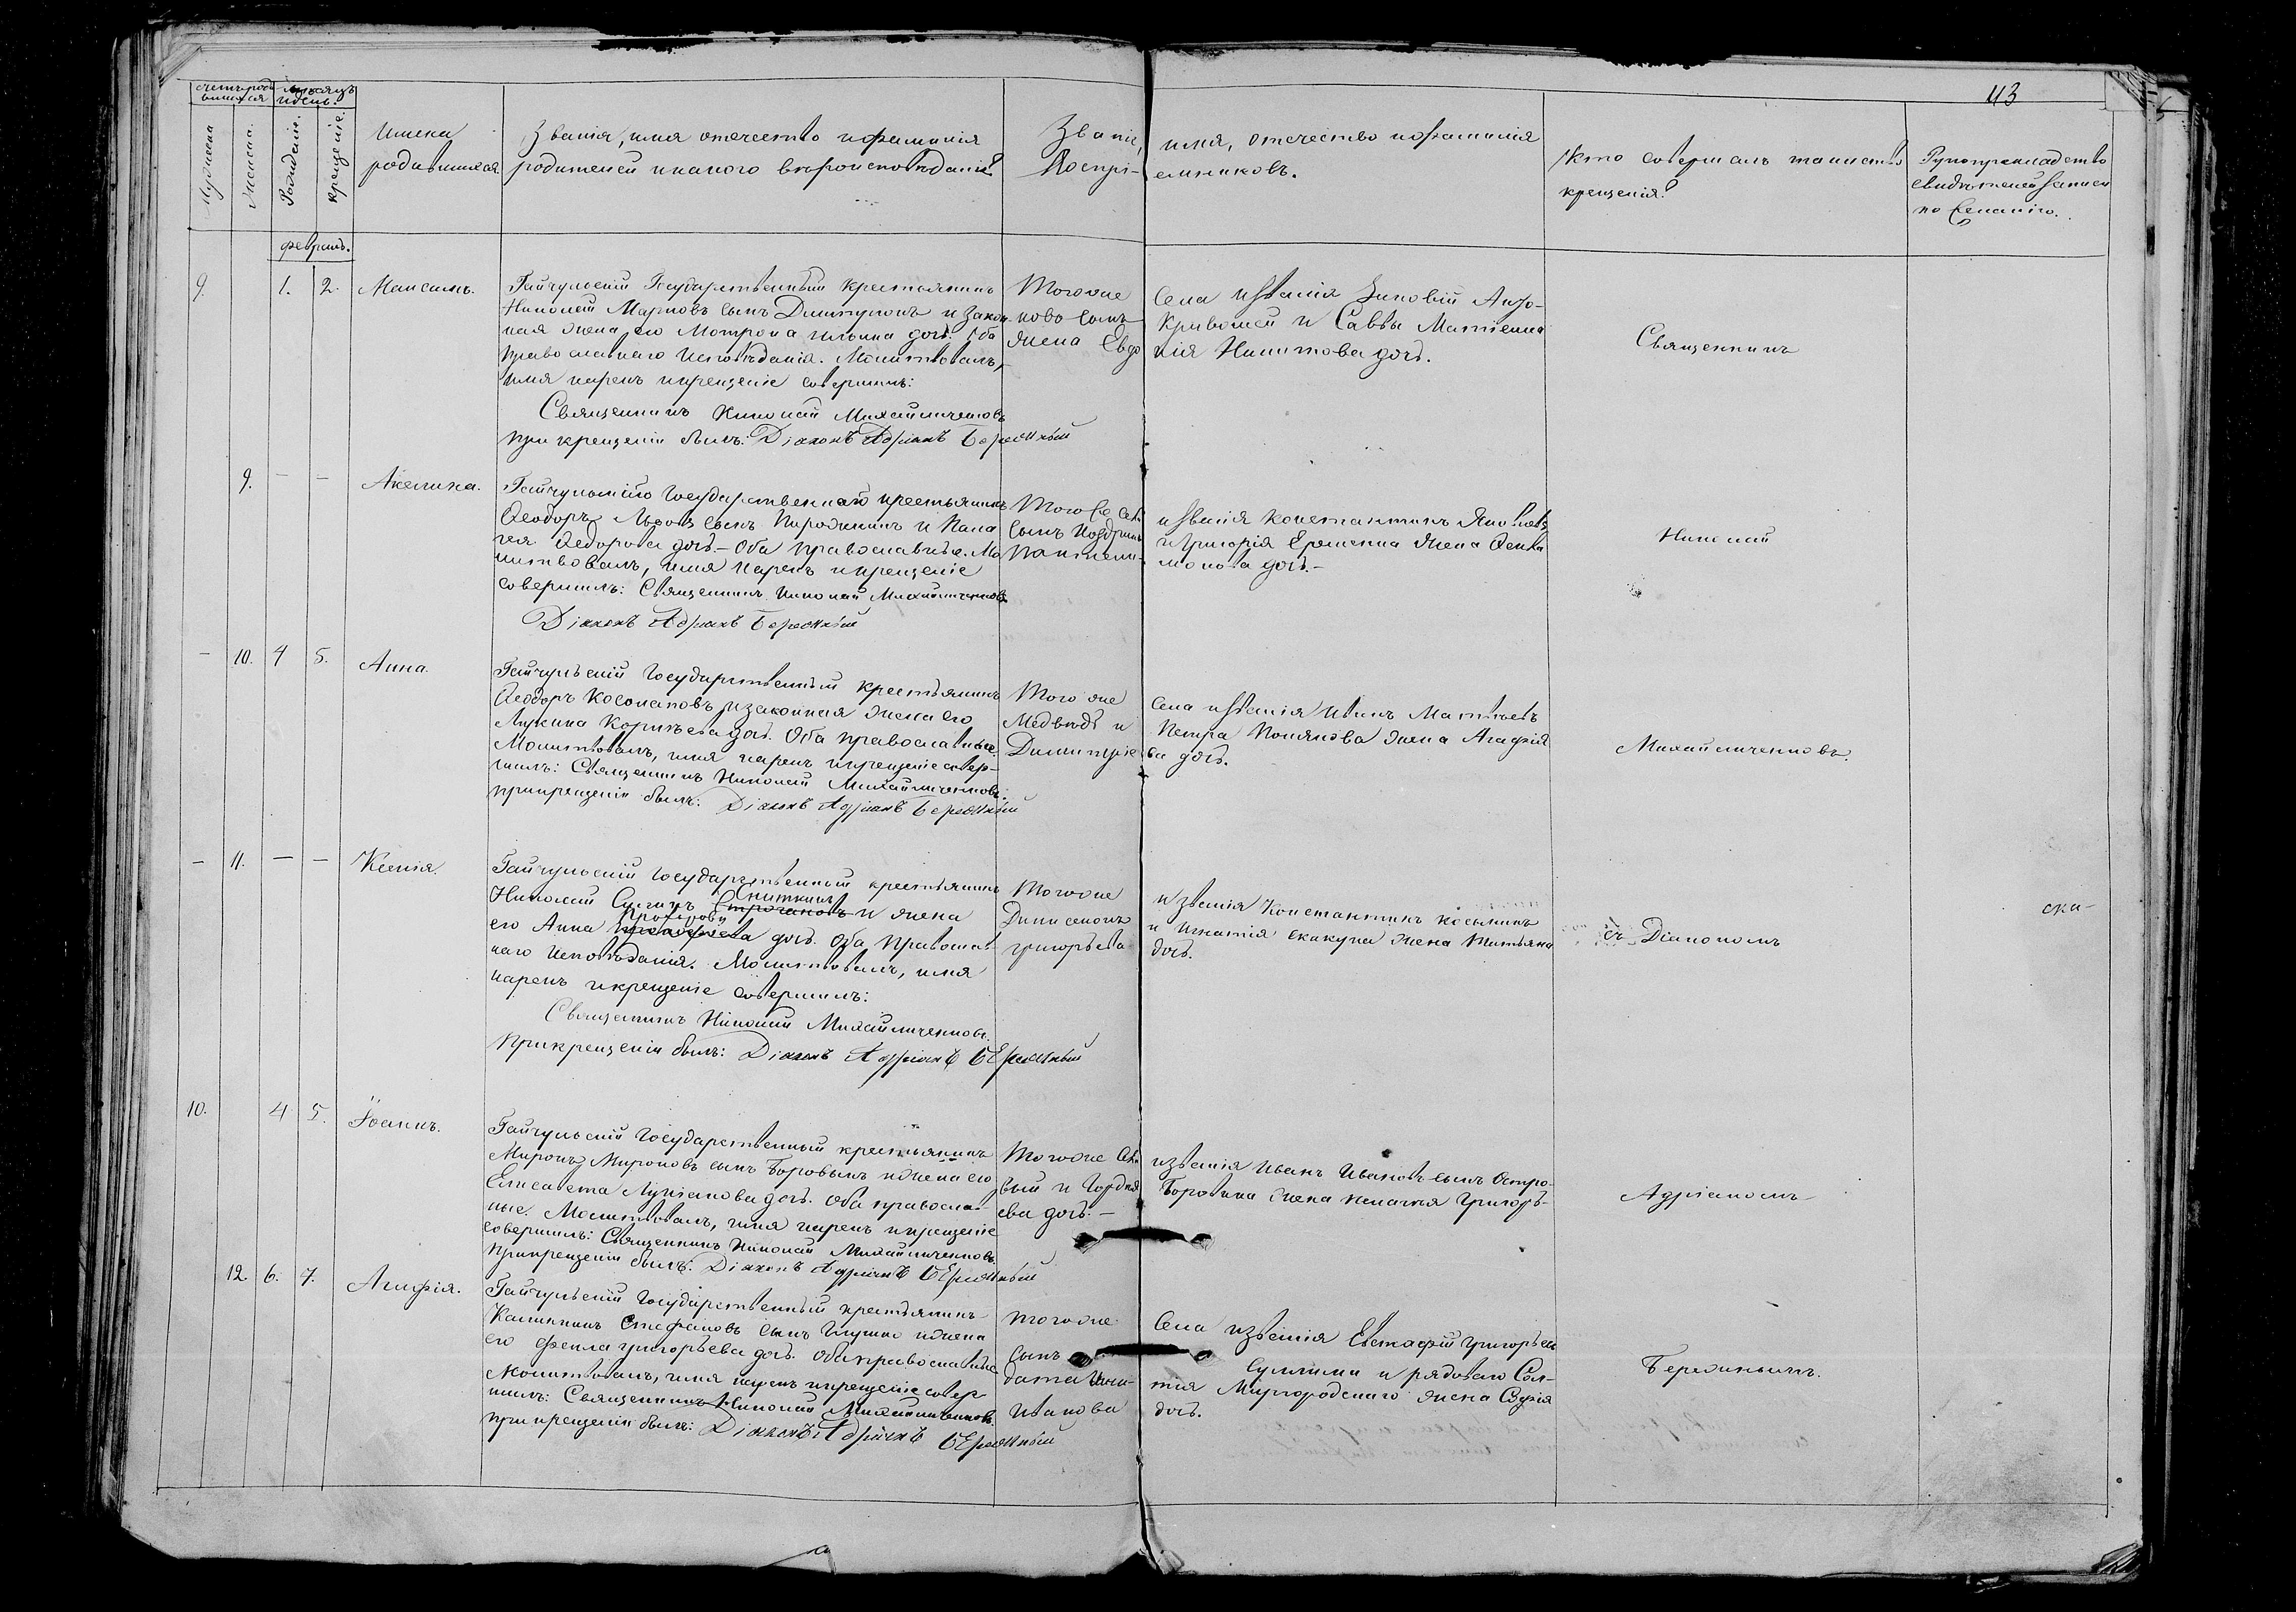 43
Счетъ роди-
вшихся
Мѣсяцъ
и день.
Мужеска
Женска.
Рожденія.
Крещеніе.
Имена
родившихся
Званія, имя отчество и фамилія
родителей и какого вѣроисповѣданія?
Званіе, имя, отчество и фамилія
Воспрі- емниковъ.
Кто совершалъ таинство
крещенія?
Рукоприкладство
свидѣтелей записи
по желанію.
Февраль.
9. 1. 2. Максимъ.
Гайчульскій Государственный крестьянинъ
Николай Марковъ сынъ Димитрюкъ и закон-
ная жена его Мотрона Ильина дочь. Оба
православнаго исповѣданія. Молитвовалъ,
имя нарекъ и крещеніе совершилъ:
Священникъ Николай Михайличенковъ
При крещеніи былъ: Діаконъ Адріанъ Бережный
Того же Села и званія Зиновій
ново сынъ Кривошей и Саввы
жена Евдо кія Никитова дочь.
Священникъ
9. — — Акелина.
Гайчульскаго Государственнаго крестьянинъ
Ѳеодоръ сынъ и Пела
гея Ѳедорова дочь. — Оба православные. Мо
литвовалъ, имя нарекъ и крещеніе
совершилъ: Священникъ Николай Михайличенковъ
Діаконъ Адріанъ Бережный
Того же и званія Константинъ Яковлевъ
сынъ и Григорія Еременка жена Ѳекла
Пантели- монова дочь. —
Николай
— 10. 4 5. Анна.
Гайчульскій Государственный крестьянинъ
Ѳеодоръ и законная жена его
дочь. Оба православные.
Молитвовалъ, имя нарекъ и крещеніе совер-
шилъ: Священникъ Николай Михайличенковъ.
При крещеніи былъ: Діаконъ Адріанъ Бережный
Того же Села и званія Иванъ Матвѣевъ
Медвѣдь и Петра Полякова жена Агафія
Димитріе ва дочь.
Михайличенковъ.
— 11. — — Ксенія.
Гайчульскій Государственный крестьянинъ
Николай и жена
его Анна дочь. Оба православ
наго исповѣданія. Молитвовалъ, имя
нарекъ и крещеніе совершилъ:
Священникъ Николай Михайличенковъ.
При крещеніи былъ: Діаконъ Адріанъ Бережный
Того же и званія Константинъ Косьминъ
и Игнатія Скакуна жена Татьяна
Григорьева дочь.
съ Діакономъ
ска-
10. 4 5. Іоаннъ.
Гайчульскій Государственный крестьянинъ
Миронъ Мироновъ сынъ Боровыкъ и жена его
Елисавета Лукіанова дочь. Оба православ-
ные. Молитвовалъ, имя нарекъ и крещеніе
совершилъ: Священникъ Николай Михайличенковъ
При крещеніи былъ: Діаконъ Адріанъ Бережный
Того же и званія Иванъ Ивановъ сынъ Остро-
вый и Гордѣя Боровика жена Пелагея Григорь-
ева дочь. —
Адріаномъ
12. 6. 7. Агафія.
Гайчульскій Государственный крестьянинъ
Каллиникъ Стефановъ сынъ и жена
его Ѳекла Григорьева дочь. Оба православные
Молитвовалъ, имя нарекъ и крещеніе совер
шилъ: Священникъ Николай Михайличенковъ.
При крещеніи былъ: Діаконъ Адріанъ Бережный
Того же Села и званія Евстафій Григорьевъ
сынъ Сулима и рядоваго Сол-
дата Миргородскаго жена Софія
Иванова дочь.
Бережнымъ.